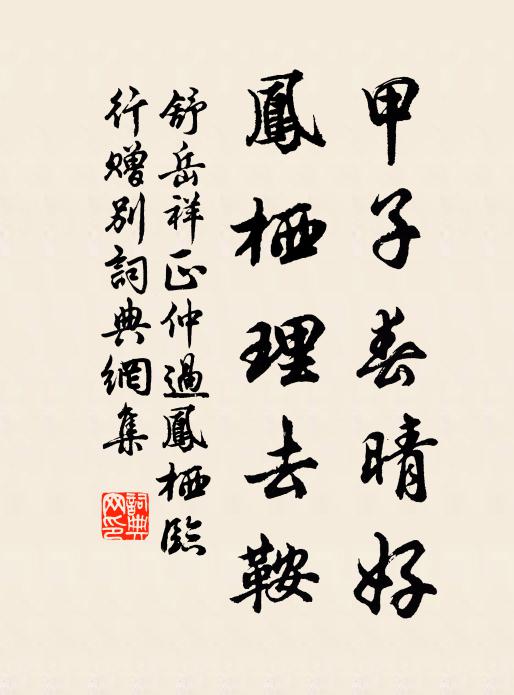 甲子春晴好
鳳栖理去鞍
舒岳祥正仲過鳳栖臨
行贈別詞典網集
詞典
网印